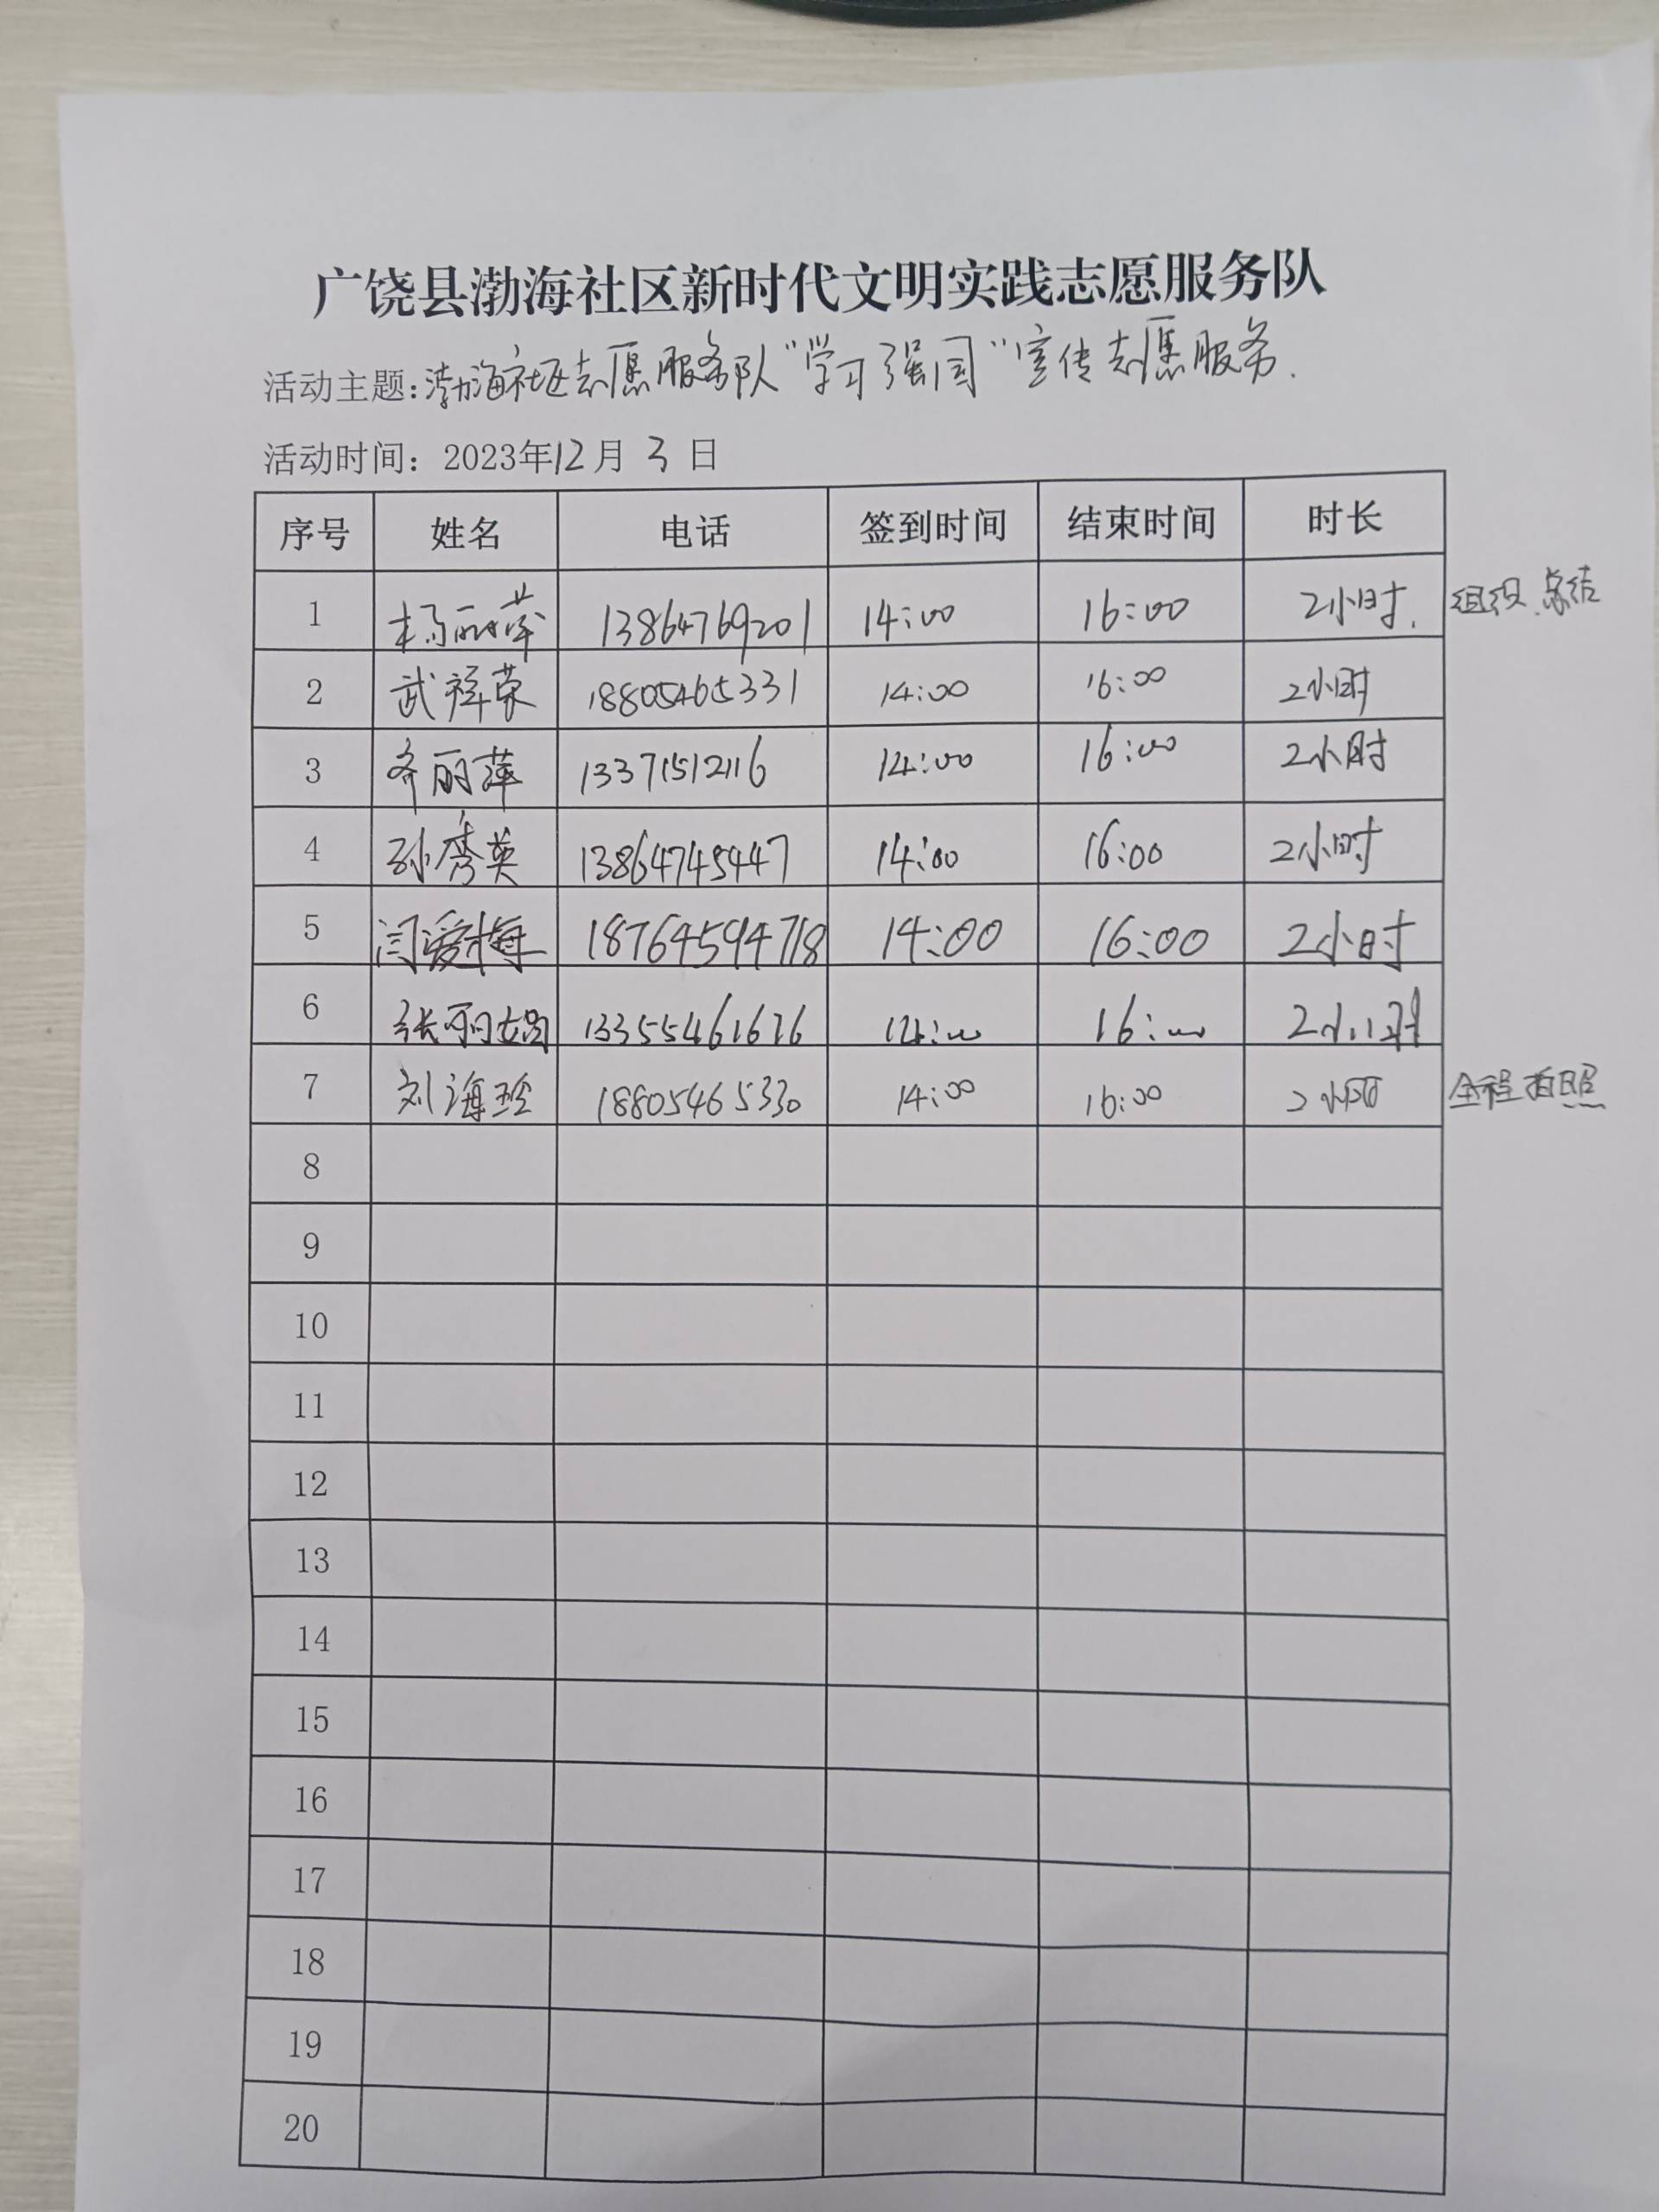 广饶县渤海社区新时代文明实践志愿服务队
活动主题:渤海社区志愿服务队“学习强国”宣传志愿服务.
活动时间：2023年12月3日
序号 姓名 电话 签到时间 结束时间 时长
1 杨丽萍 13864769201 14:00 16:00 2小时. 组织、总结
2 武祥荣 18805465331 14:00 16:00 2小时
3 齐丽萍 13371512116 14:00 16:00 2小时
4 孙秀英 13864745447 14:00 16:00 2小时
5 闫爱梅 18764594718 14:00 16:00 2小时
6 张丽娟 13355461676 14:00 16:00 2小时
7 刘海玲 18805465330 14:00 16:00 2小时 全程拍照
8
9
10
11
12
13
14
15
16
17
18
19
20